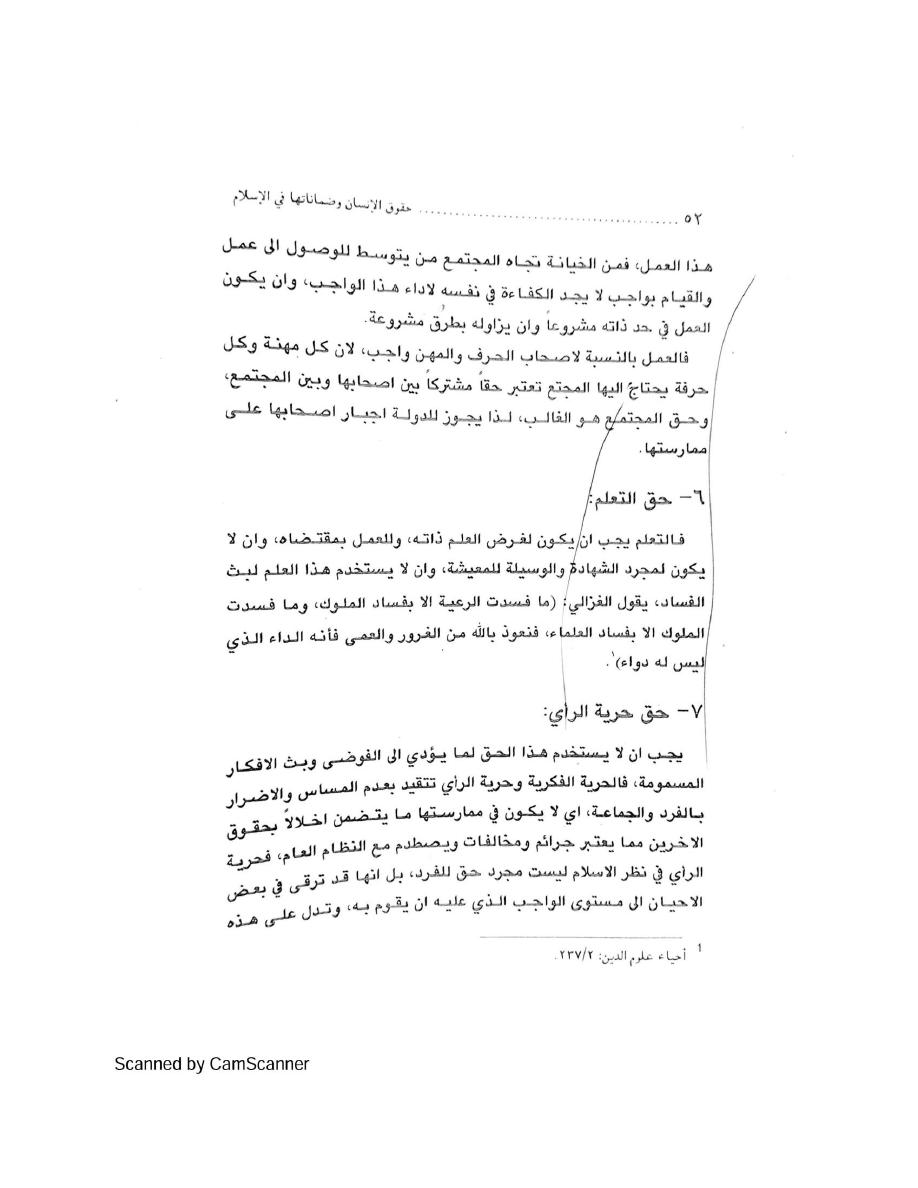 ٥٢ ........................................ حقوق الإنسان وضماناتها في الإسلام
هذا العمل، فمن الخيانة تجاه المجتمع من يتوسط للوصول الى عمل
والقيام بواجب لا يجد الكفاءة في نفسه لاداء هذا الواجب، وان يكون
العمل في حد ذاته مشروعاً وان يزاوله بطرق مشروعة.
فالعمل بالنسبة لاصحاب الحرف والمهن واجب، لان كل مهنة وكل
حرفة يحتاج اليها المجتع تعتبر حقاً مشتركاً بين اصحابها وبين المجتمع،
وحق المجتمع هو الغالب، لذا يجوز للدولة اجبار اصحابها على
ممارستها.
٦- حق التعلم:
فالتعلم يجب ان يكون لغرض العلم ذاته، وللعمل بمقتضاه، وان لا
يكون لمجرد الشهادة والوسيلة للمعيشة، وان لا يستخدم هذا العلم لبث
الفساد، يقول الغزالي: (ما فسدت الرعية الا بفساد الملوك، وما فسدت
الملوك الا بفساد العلماء، فنعوذ بالله من الغرور والعمى فأنه الداء الذي
ليس له دواء)¹.
٧- حق حرية الرأي:
يجب ان لا يستخدم هذا الحق لما يؤدي الى الفوضى وبث الافكار
المسمومة، فالحرية الفكرية وحرية الرأي تتقيد بعدم المساس والاضرار
بالفرد والجماعة، اي لا يكون في ممارستها ما يتضمن اخلالاً بحقوق
الاخرين مما يعتبر جرائم ومخالفات ويصطدم مع النظام العام، فحرية
الرأي في نظر الاسلام ليست مجرد حق للفرد، بل انها قد ترقى في بعض
الاحيان الى مستوى الواجب الذي عليه ان يقوم به، وتدل على هذه
¹ أحياء علوم الدين: ٢٣٧/٢.
Scanned by CamScanner